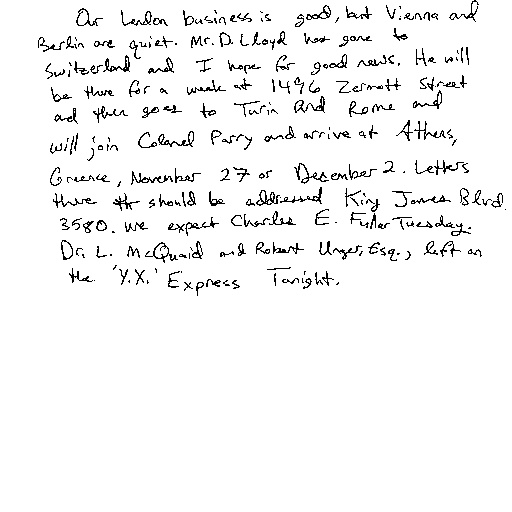 Our London business is good, but Vienna and
Berlin are quiet. Mr. D. Lloyd has gone to
Switzerland and I hope for good news. He will
be there for a week at 1496 Zermott Street
and then goes to Turin and Rome and
will join Colonel Parry and arrive at Athens,
Greence, November 27 or December 2. Letters
there should be addressed King James Blvd.
3580. We expect Charles E. Fuller Tuesday.
Dr. L. McQuaid and Robert Unger, Esq., left on
the 'Y.X.' Express Tonight.